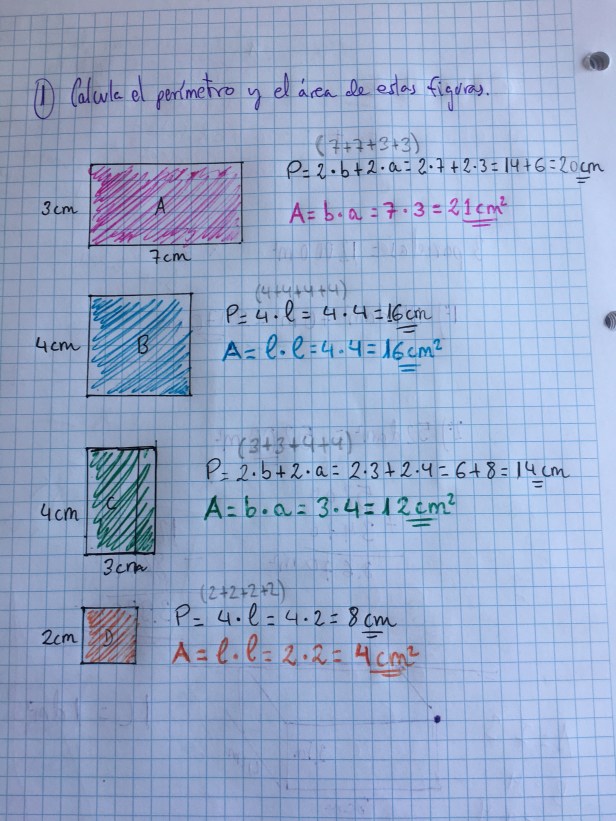 ① Calcula el perímetro y el área de estas figuras.
(7+7+3+3)
P=2·b+2·a=2·7+2·3=14+6=20cm
3cm
A
A=b·a=7·3=21cm²
7cm
(4+4+4+4)
P=4·l=4·4=16cm
4cm
B
A=l·l=4·4=16cm²
(3+3+4+4)
P=2·b+2·a=2·3+2·4=6+8=14cm
4cm
C
A=b·a=3·4=12cm²
3cm
(2+2+2+2)
P=4·l=4·2=8cm
2cm
D
A=l·l=2·2=4cm²